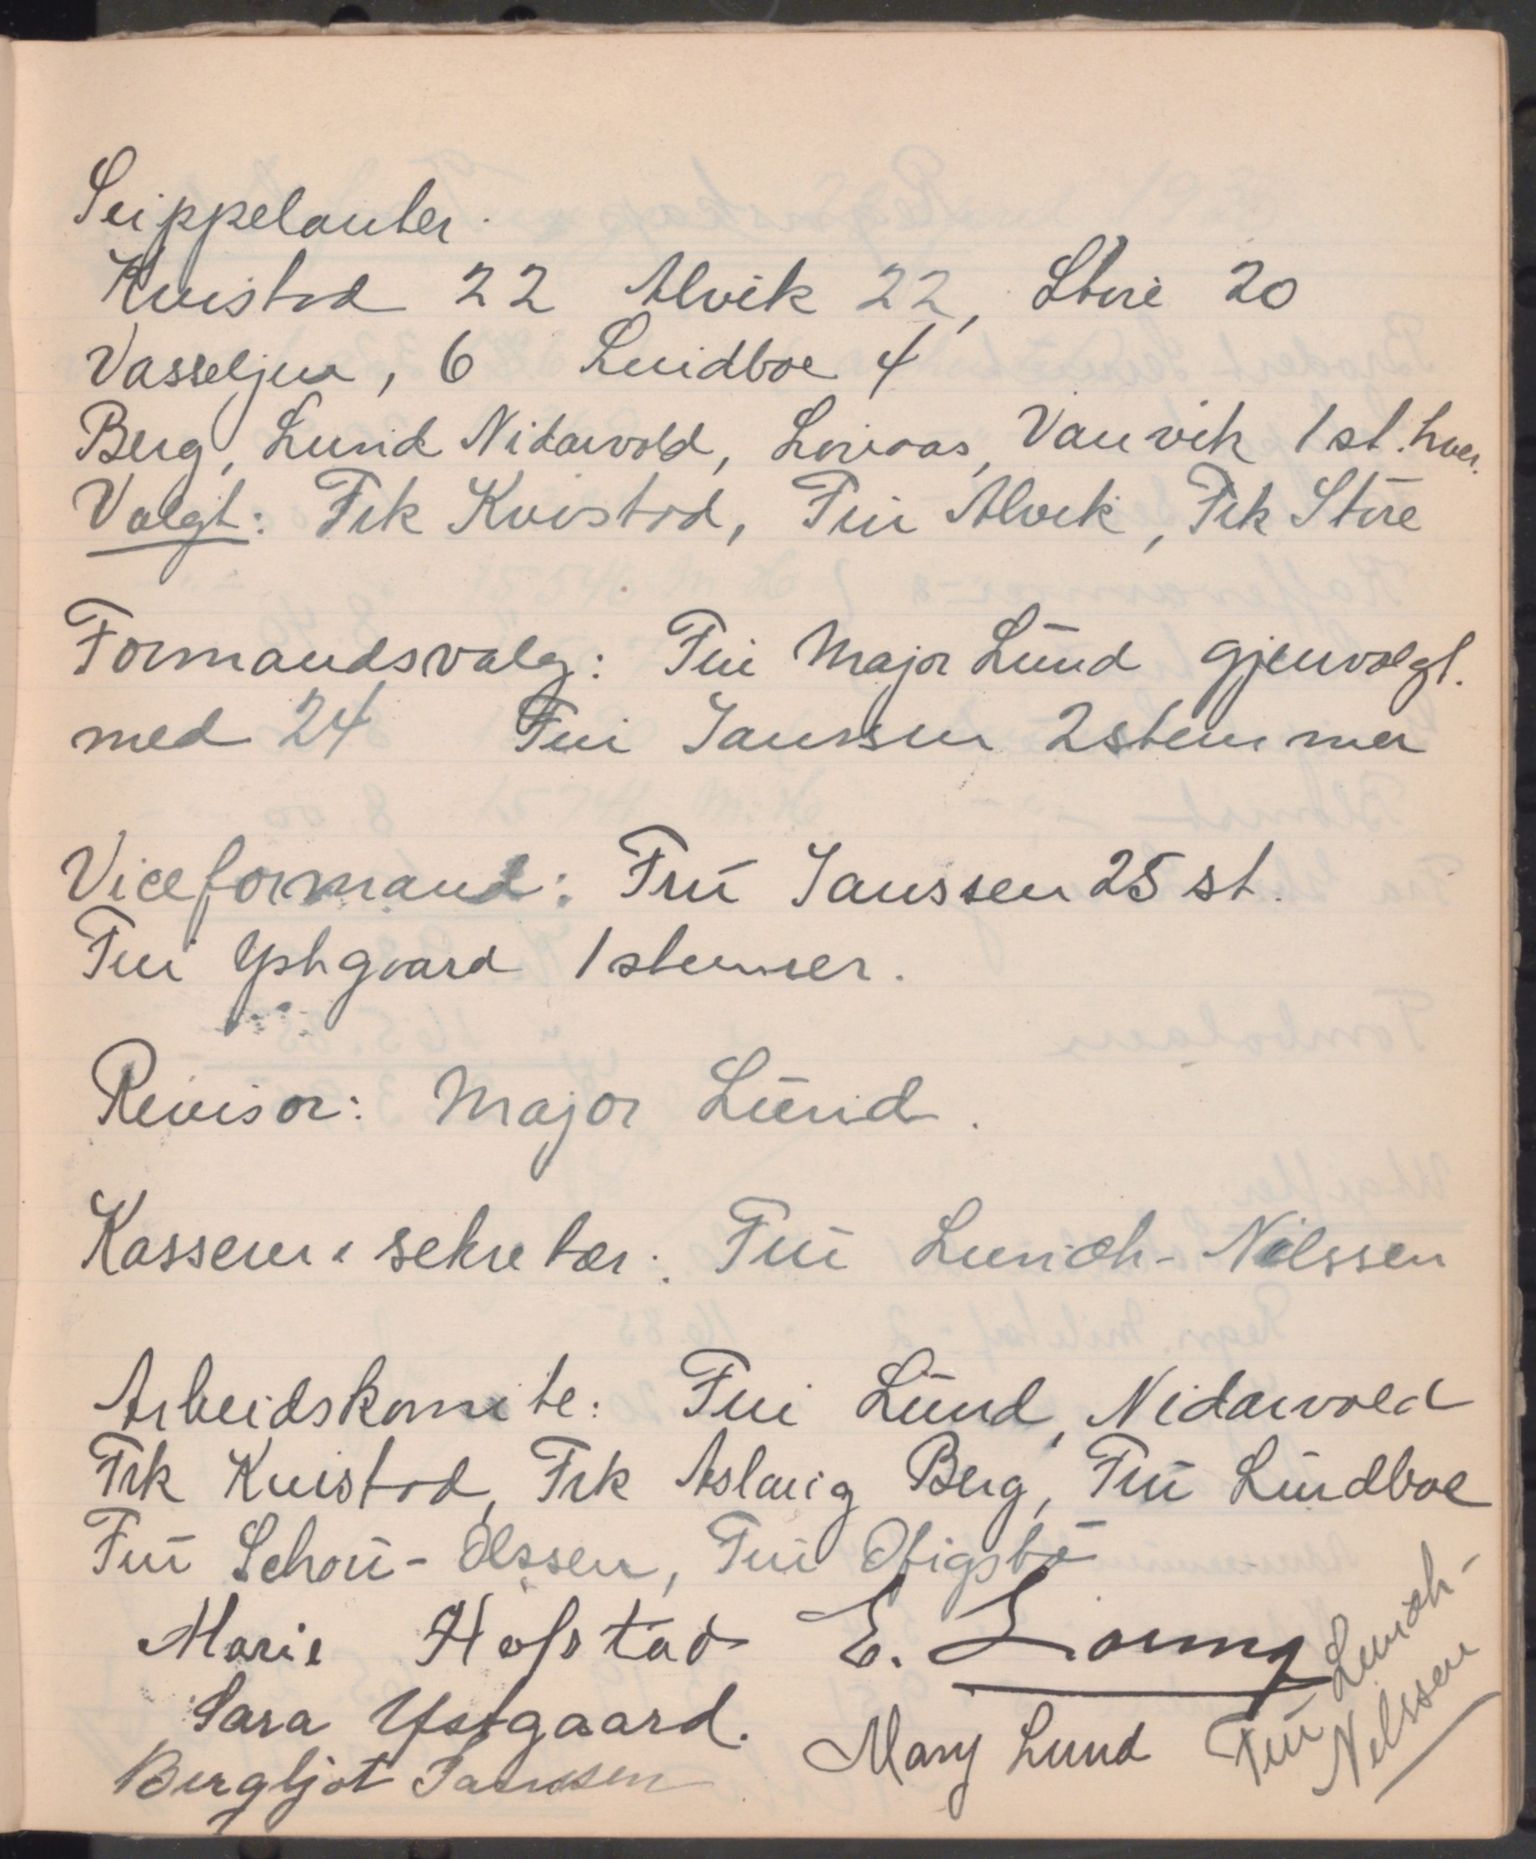 Suppeleanter.
Kvistad 22 Alvik 22, Støre 20
Vasseljen, 6 Lundboe 4
Berg, Lund Nidarvold, Vanvik 1 st. hver.
Valgt: Frk Kvistad, Fru Alvik, Frk Støre
Formandsvalg: Fru Major Lund gjenvalgt.
med 24 Fru Janssen 2 stemmer
Viceformand: Frú Janssen 25 st.
Fru Ystgaard 1 stemmer.
Revisor: Major Lund.
Kasserer & sekretær: Fru Lunich-Nilssen
Arbeidskomite: Fru Lund, Nidarvold
Frk Kvistad, Frk Aslaug Berg, Fru Lundboe
Fru Schou-Olssen, Fru
Marie Hofstad E.
Sara Ystgaard. Mary Lund Fru Lunich-
Nilssen
Bergljot Janssen